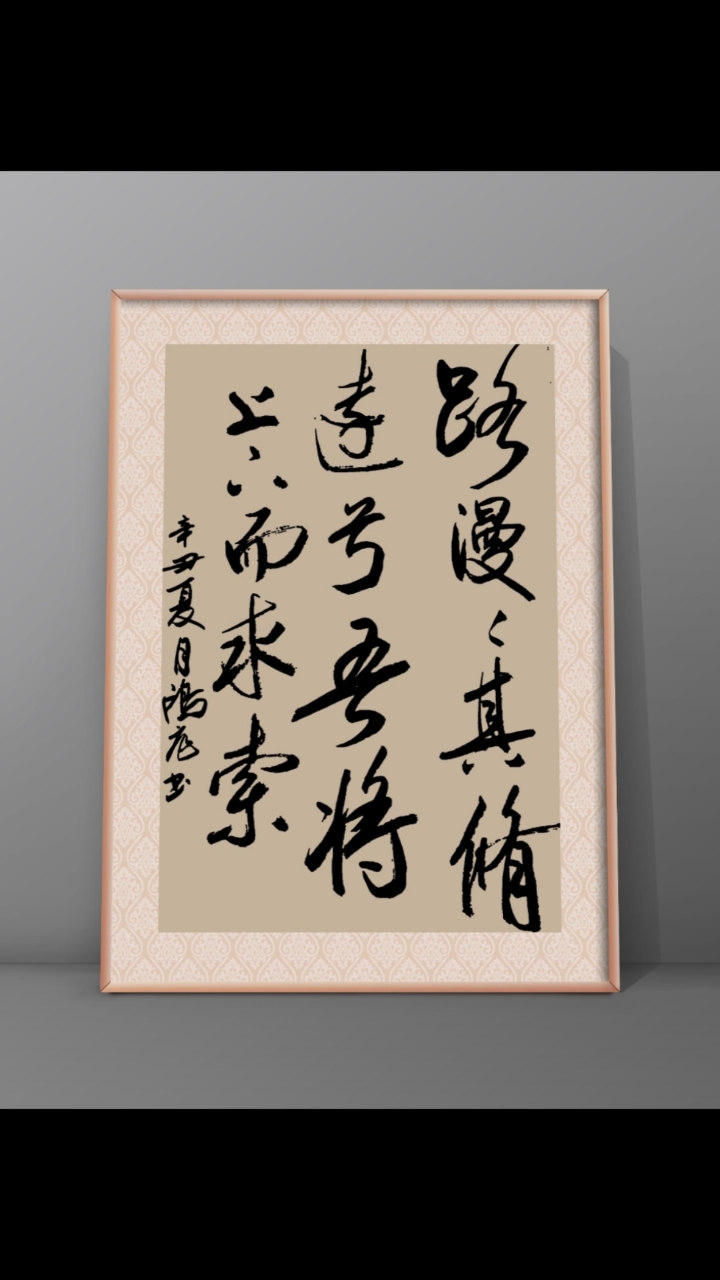 路漫〻其脩
遠兮吾将
上下而求索
辛丑夏月鴻 书